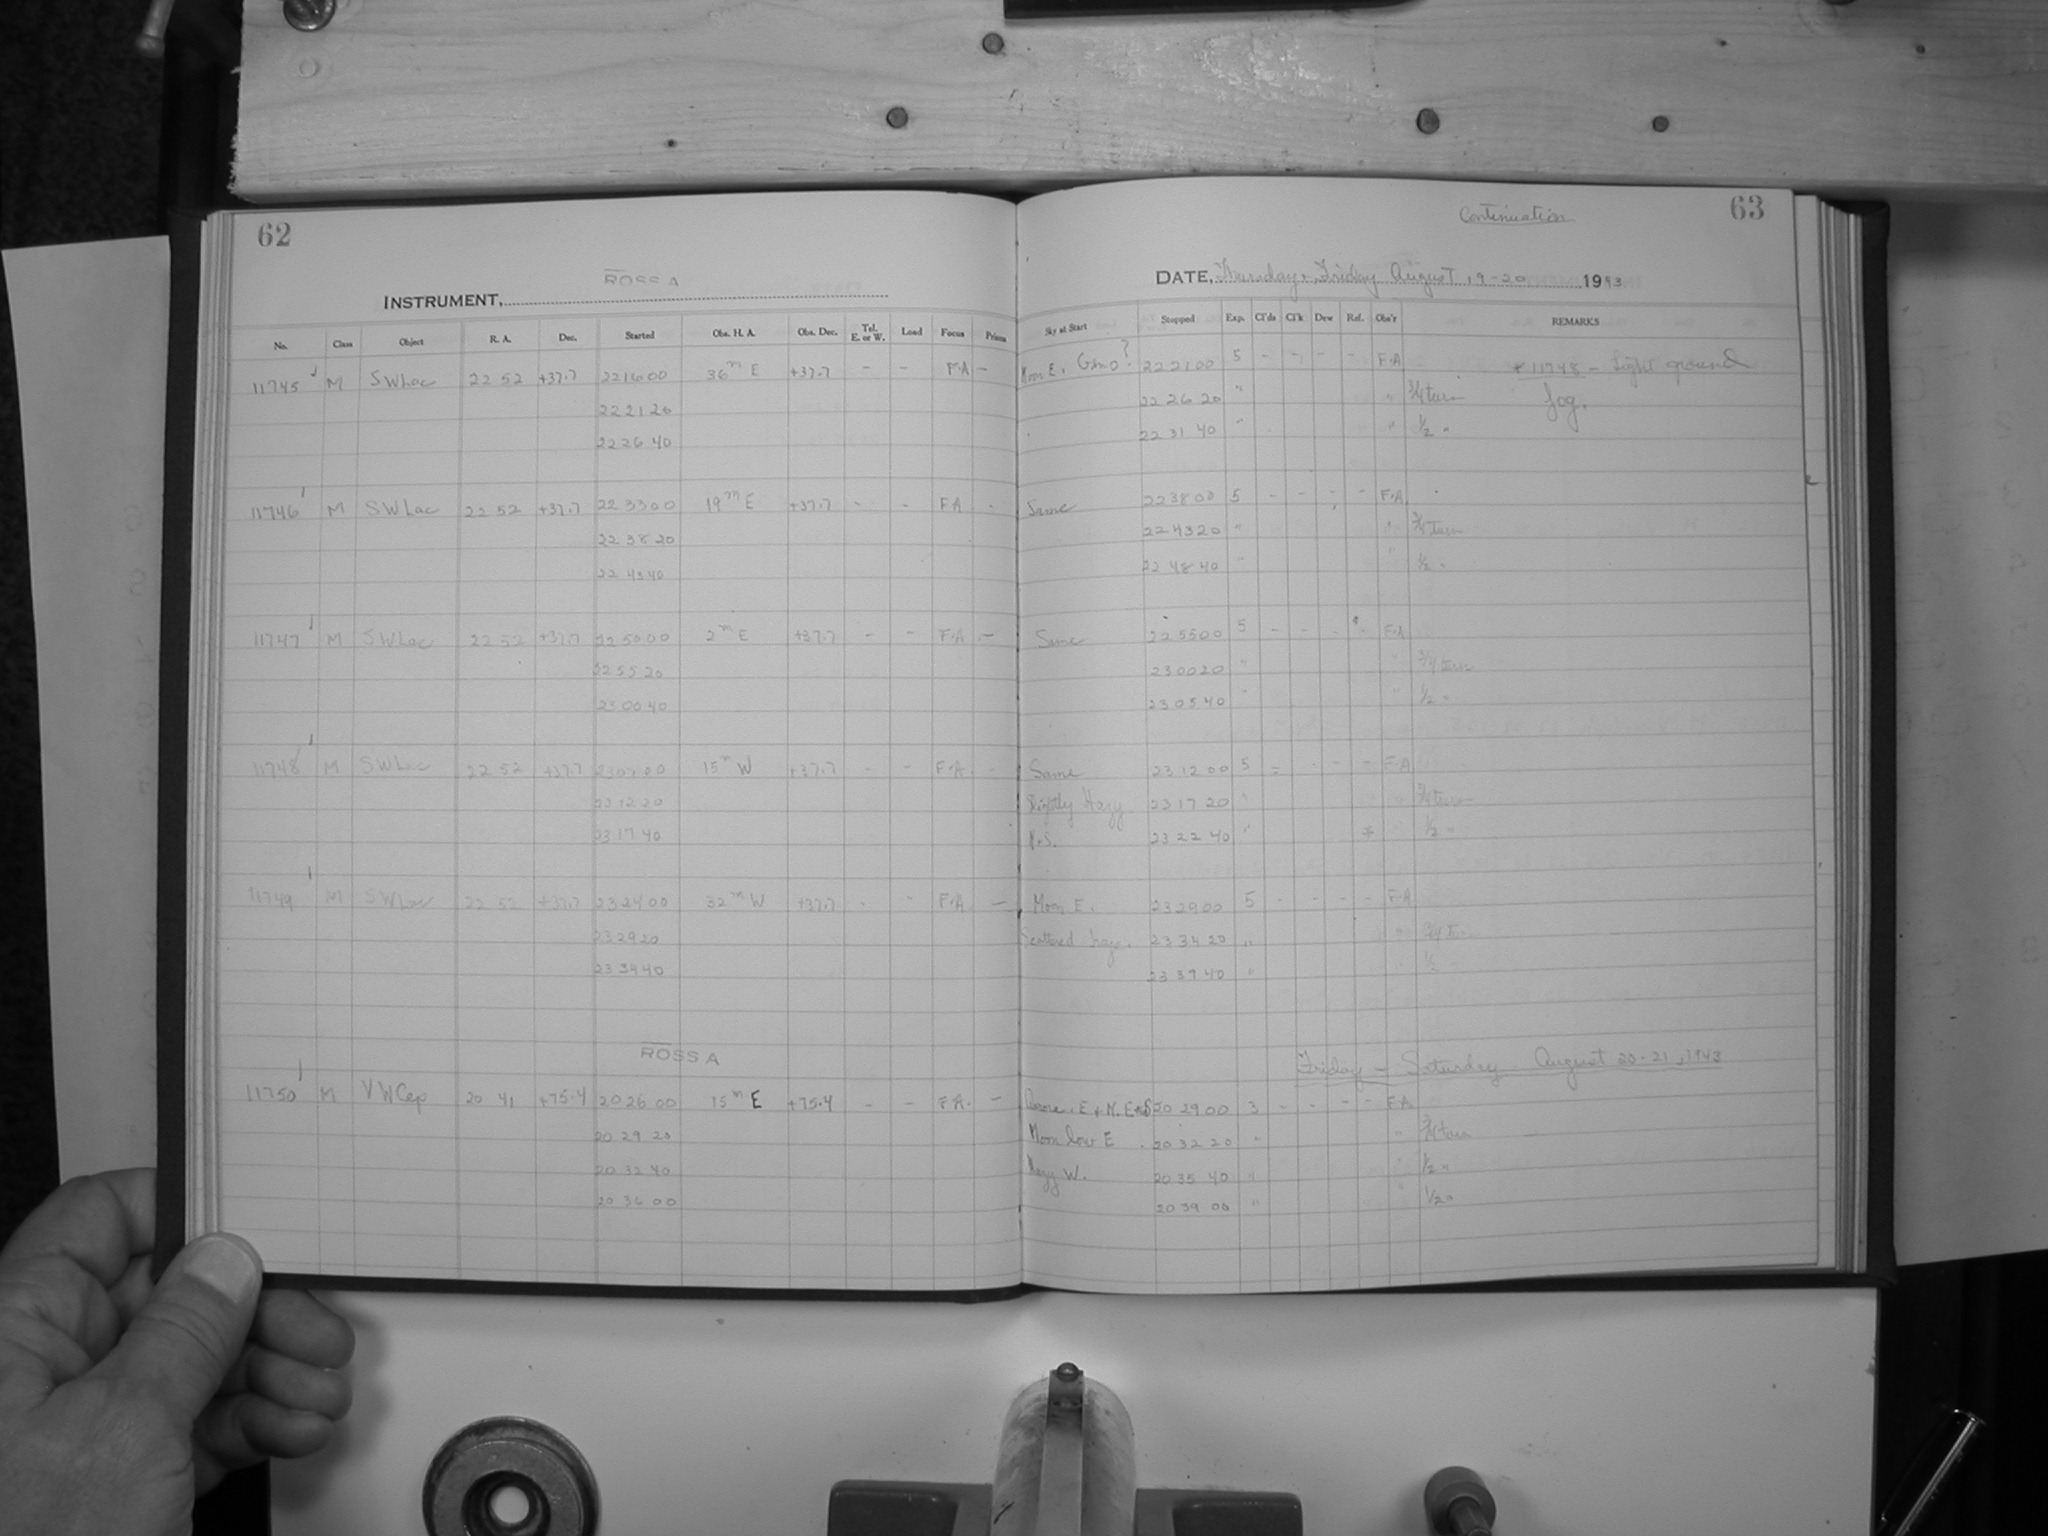 62
ROSS A
INSTRUMENT,
No. Class Object R. A. Dec. Started Obs. H. A. Obs. Dec. Tel. E. or W. Load Focus Prisms
11745 M SW Lac 22 52 +37.7 22 16 00 36m E +37.7 - - F.A -
22 21 20
22 26 40
11746 M SW Lac 22 52 +37.7 22 33 00 19m E +37.7 - - FA -
22 38 20
22 43 40
11747 M SW Lac 22 52 +37.7 22 50 00 2m E +37.7 - - F.A -
22 55 20
23 00 40
11748 M SW Lac 22 52 +37.7 23 07 00 15m W +37.7 - - F.A. -
23 12 20
23 17 40
11749 M SW Lac 22 52 +37.7 23 24 00 32m W +37.7 - - F.A -
23 29 20
23 34 40
ROSS A
11750 M VW Cep 20 41 +75.4 20 26 00 15m E +75.4 - - F.A. -
20 29 20
20 32 40
20 36 00
Continuation
63
DATE, Thursday - Friday August 19-20 1943
Sky at Start Stopped Exp. Cl'ds Cl'k Dew Ref. Obs'r REMARKS
Moon E. 22 21 00 5 - - - - F.A * 11748 - Light ground
22 26 20 " " 3/4 turn fog.
22 31 40 " " 1/2 "
Same 22 38 00 5 - - - - F.A.
22 43 20 " " 3/4 turn
22 48 40 " " 1/2 "
Same 22 55 00 5 - - - - F.A
23 00 20 " " 3/4 turn
23 05 40 " " 1/2 "
Same 23 12 00 5 - - - - F.A
Slightly Hazy 23 17 20 " " 3/4 turn
23 22 40 " * " 1/2 "
Moon E. 23 29 00 5 - - - - F.A
Scattered haze. 23 34 20 " " 3/4 turn
23 39 40 " " 1/2
Friday - Saturday August 20-21, 1943
20 29 00 3 - - - - F.A.
Moon low E. 20 32 20 " " 3/4 turn
Hazy W. 20 35 40 " " 1/2 "
20 39 00 " " 1/2 "